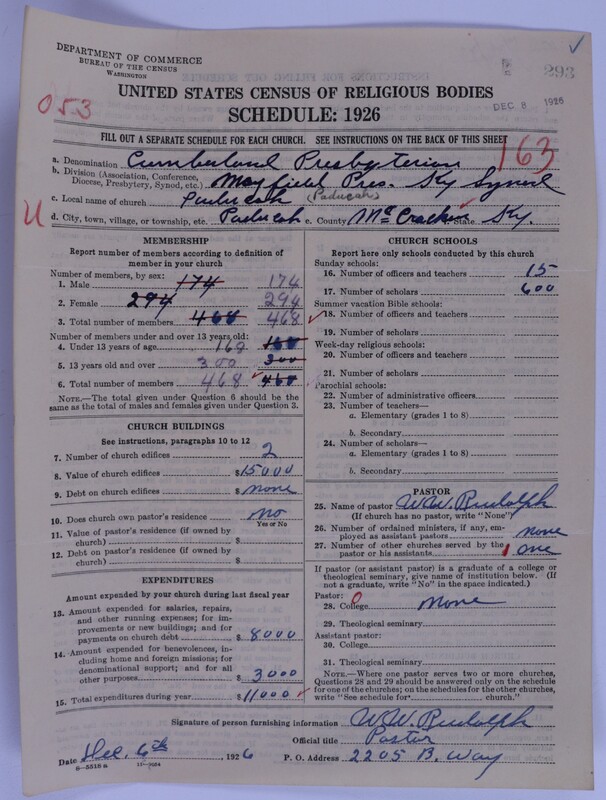 DEPARTMENT OF COMMERCE
BUREAU OF THE CENSUS
WASHINGTON
293
DEC 8 1926
UNITED STATES CENSUS OF RELIGIOUS BODIES
053
SCHEDULE: 1926
FILL OUT A SEPARATE SCHEDULE FOR EACH CHURCH. SEE INSTRUCTIONS ON THE BACK OF THIS SHEET
163
a. Denomination Cumberland Presbyterian
b. Division (Association, Conference, Diocese, Presbytery, Synod, etc.) Mayfield Pres. Ky Synod
c. Local name of church Paducah (Paducah)
d. City, town, village, or township, etc. Paducah e. County McCracken f. State Ky.
MEMBERSHIP
Report number of members according to definition of
member in your church
Number of members, by sex:
1. Male 174 174
2. Female 294 294
3. Total number of members 468 468
Number of members under and over 13 years old:
4. Under 13 years of age 168 168
5. 13 years old and over 300 300
6. Total number of members 468 468
NOTE.—The total given under Question 6 should be
same as the total of males and females given under Question 3.
CHURCH BUILDINGS
See instructions, paragraphs 10 to 12
7. Number of church edifices 2
8. Value of church edifices $15000
9. Debt on church edifices $ none
10. Does church own pastor's residence No
Yes or No
11. Value of pastor's residence (if owned by
church) $
12. Debt on pastor's residence (if owned by
church) $
EXPENDITURES
Amount expended by your church during last fiscal year
13. Amount expended for salaries, repairs,
and other running expenses; for im-
provements or new buildings; and for
payments on church debt $ 8000
14. Amount expended for benevolences, in-
cluding home and foreign missions; for
denominational support; and for all
other purposes $ 3000
15. Total expenditures during year $11000
CHURCH SCHOOLS
Report here only schools conducted by this church
Sunday schools:
16. Number of officers and teachers 15
17. Number of scholars 600
Summer vacation Bible schools:
18. Number of officers and teachers
19. Number of scholars
Week-day religious schools:
20. Number of officers and teachers
21. Number of scholars
Parochial schools:
22. Number of administrative officers
23. Number of teachers—
a. Elementary (grades 1 to 8)
b. Secondary
24. Number of scholars—
a. Elementary (grades 1 to 8)
b. Secondary
PASTOR
25. Name of pastor W.W. Rudolph
(If church has no pastor, write "None")
26. Number of ordained ministers, if any, em-
ployed as assistant pastors none
27. Number of other churches served by the
pastor or his assistants 1 one
If pastor (or assistant pastor) is a graduate of a college or
theological seminary, give name of institution below. (If
not a graduate, write "No" in the space indicated.)
Pastor: 0
28. College None
29. Theological seminary
Assistant pastor:
30. College
31. Theological seminary
NOTE.—Where one pastor serves two or more churches,
Questions 28 and 29 should be answered only on the schedule
for one of the churches; on the schedules for the other churches,
write "See schedule for church."
Signature of person furnishing information W.W. Rudolph
Official title Pastor
Date Dec. 6th 1926 P. O. Address 2205 B. Way